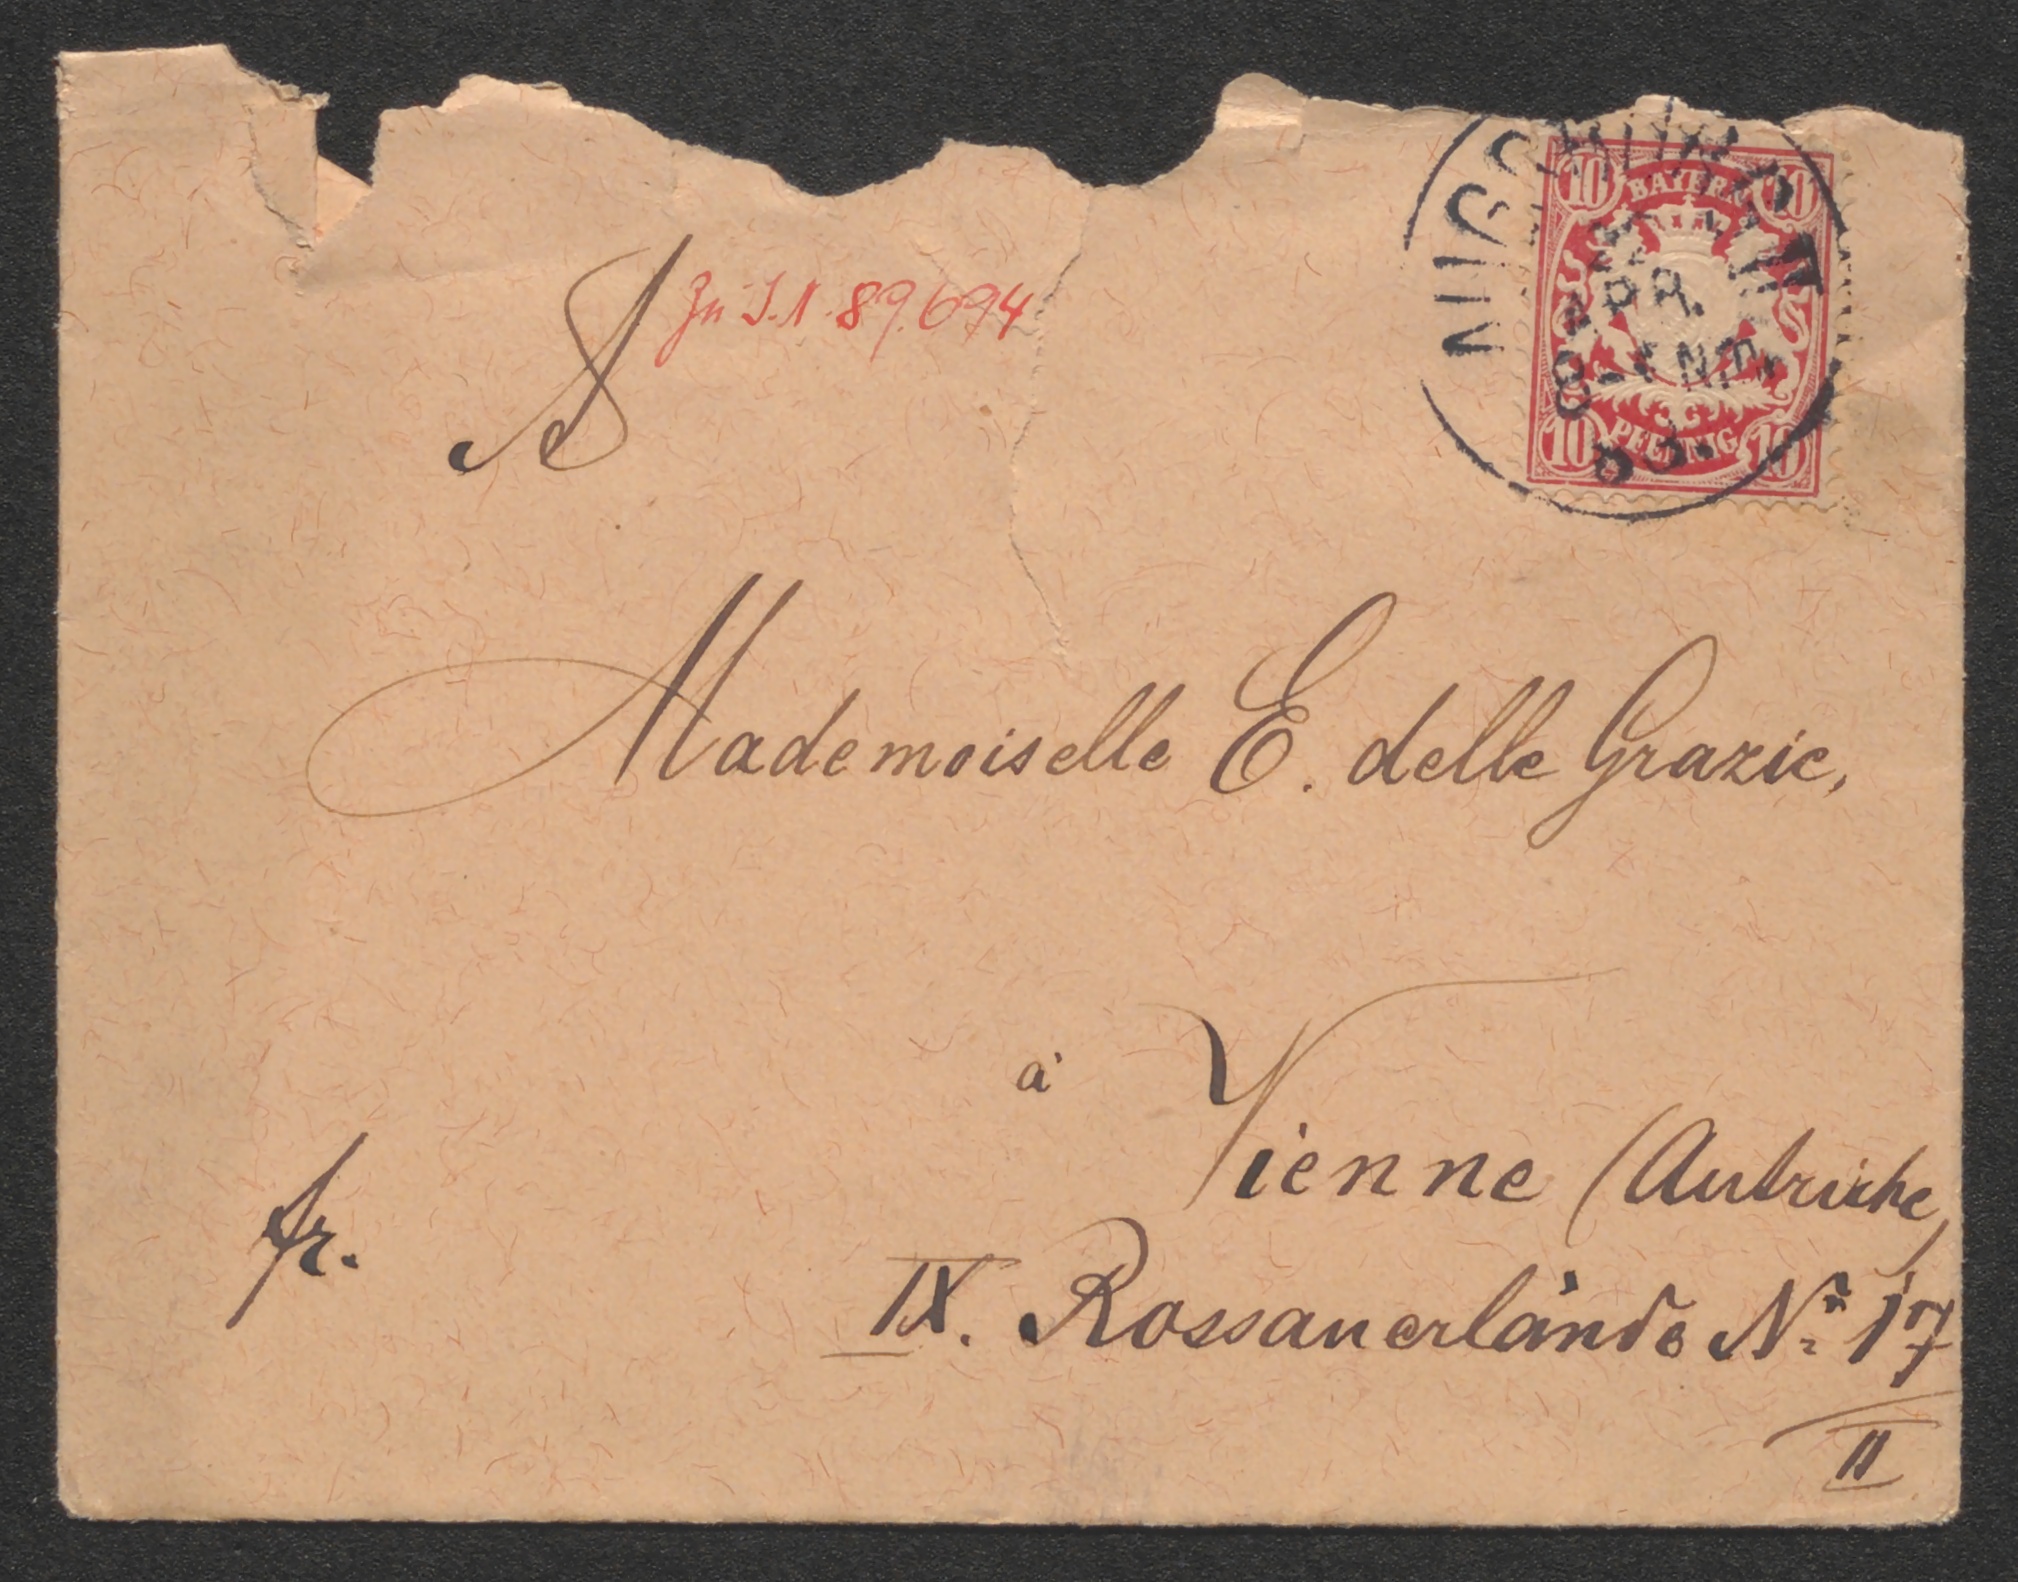 AUGSBURG II
APR.
83.
BAYERN
10 10
PFENNIG
10 10
Zu I.N. 89.694
A
Mademoiselle E. delle Grazie,
à
Vienne (Autriche)
fr.
IX. Rossauerlände No 17
II